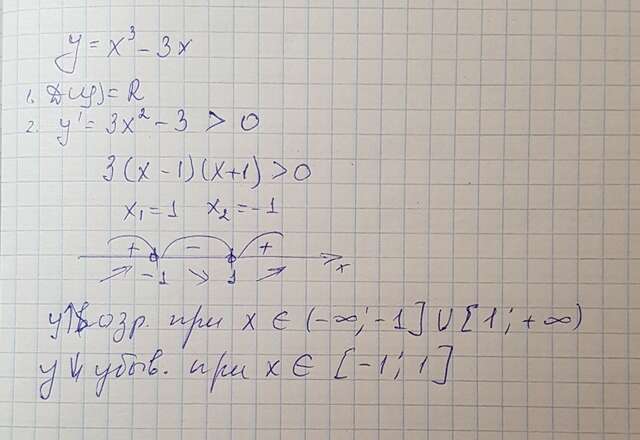 y = x³ - 3x
1. D(y) = R
2. y' = 3x² - 3 > 0
3(x - 1)(x + 1) > 0
x₁ = 1 x₂ = -1
+ - +
-1 1 x
y↑ возр. при x ∈ (-∞; -1] ∪ [1; +∞)
y↓ убыв. при x ∈ [-1; 1]